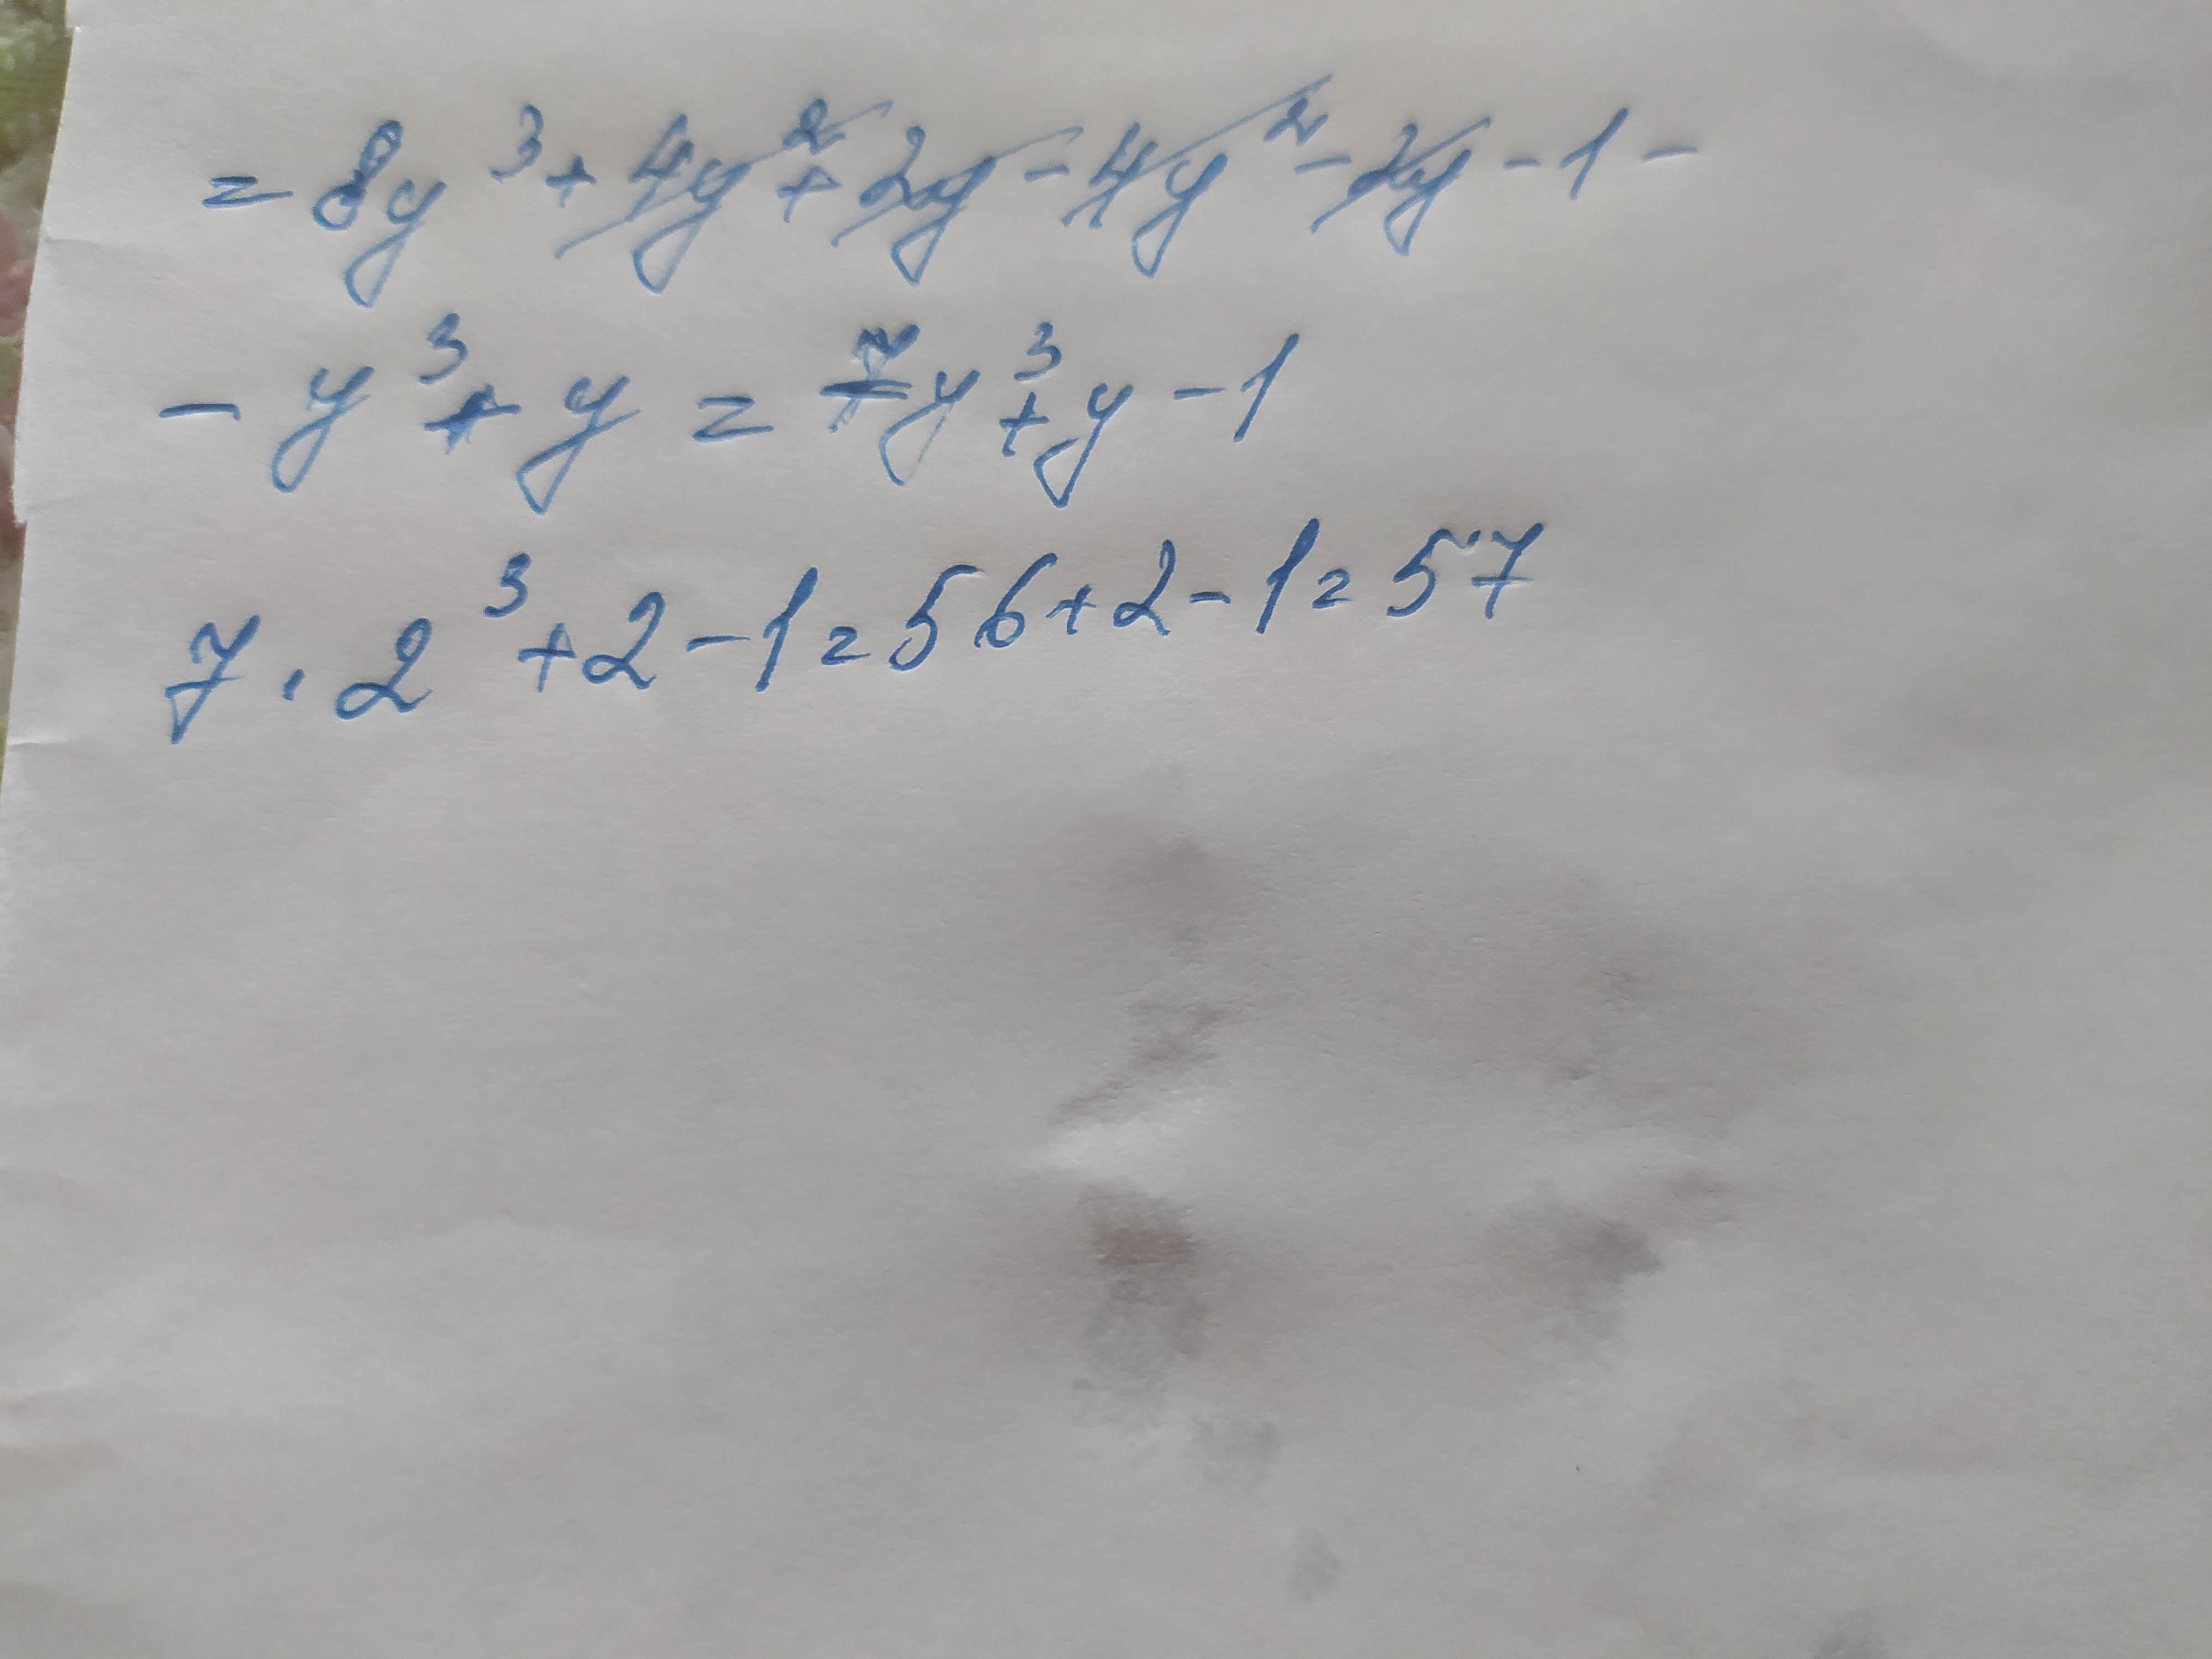 = 8y³ + 4y² + 2y - 4y² - 2y - 1 -
- y³ + y = 7y³ + y - 1
7 · 2³ + 2 - 1 = 56 + 2 - 1 = 57